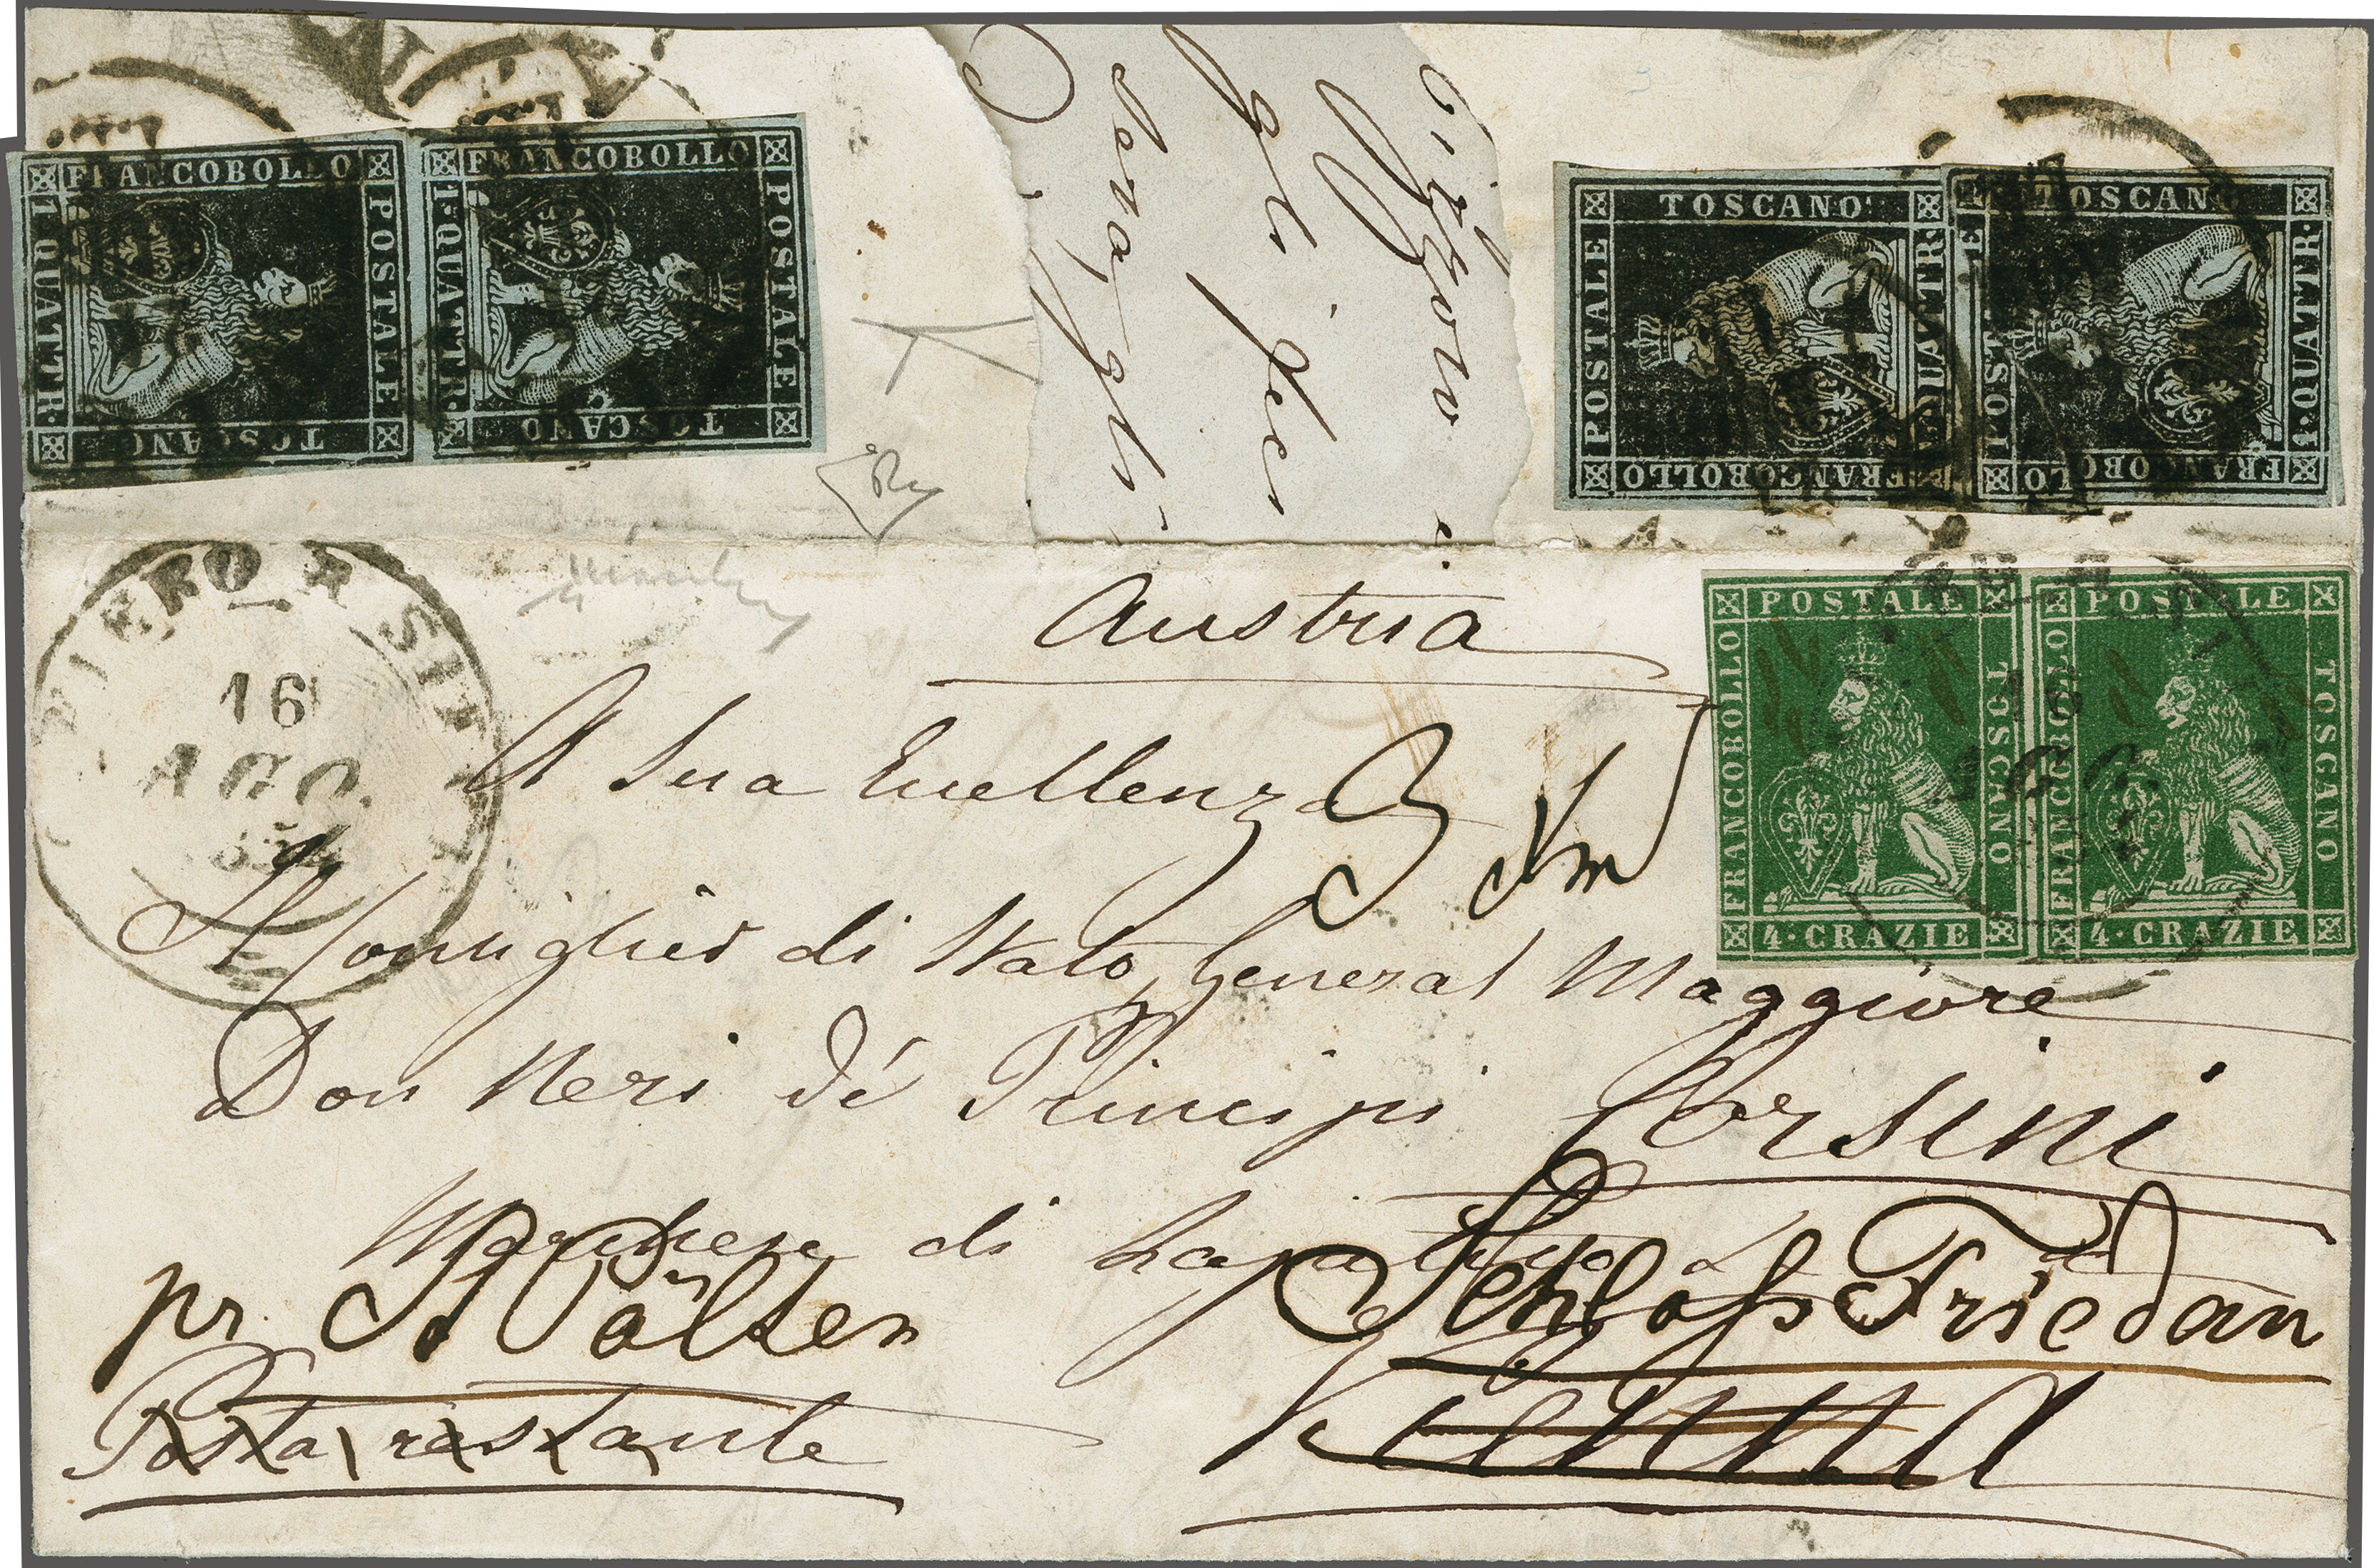 FRANCOBOLLO POSTALE TOSCANO 1·QUATTR·
FRANCOBOLLO POSTALE TOSCANO 1·QUATTR·
TOSCANO QUATTR· FRANCOBOLLO POSTALE
TOSCANO 1·QUATTR· FRANCOBOLLO POST
gli
PIETRO A SIE
16
AGO.
POSTALE TOSCANO 4·CRAZIE FRANCOBOLLO
POSTALE TOSCANO 4·CRAZIE FRANCOBOLLO
16
AGO
Austria
A Sua Eccellenza
Il Consiglier di Stato, General Maggiore
Don Neri de' Principi Corsini
Marchese di Lajatico
pr. St Pölten
Schloß Friedau
Posta restante
Vienna